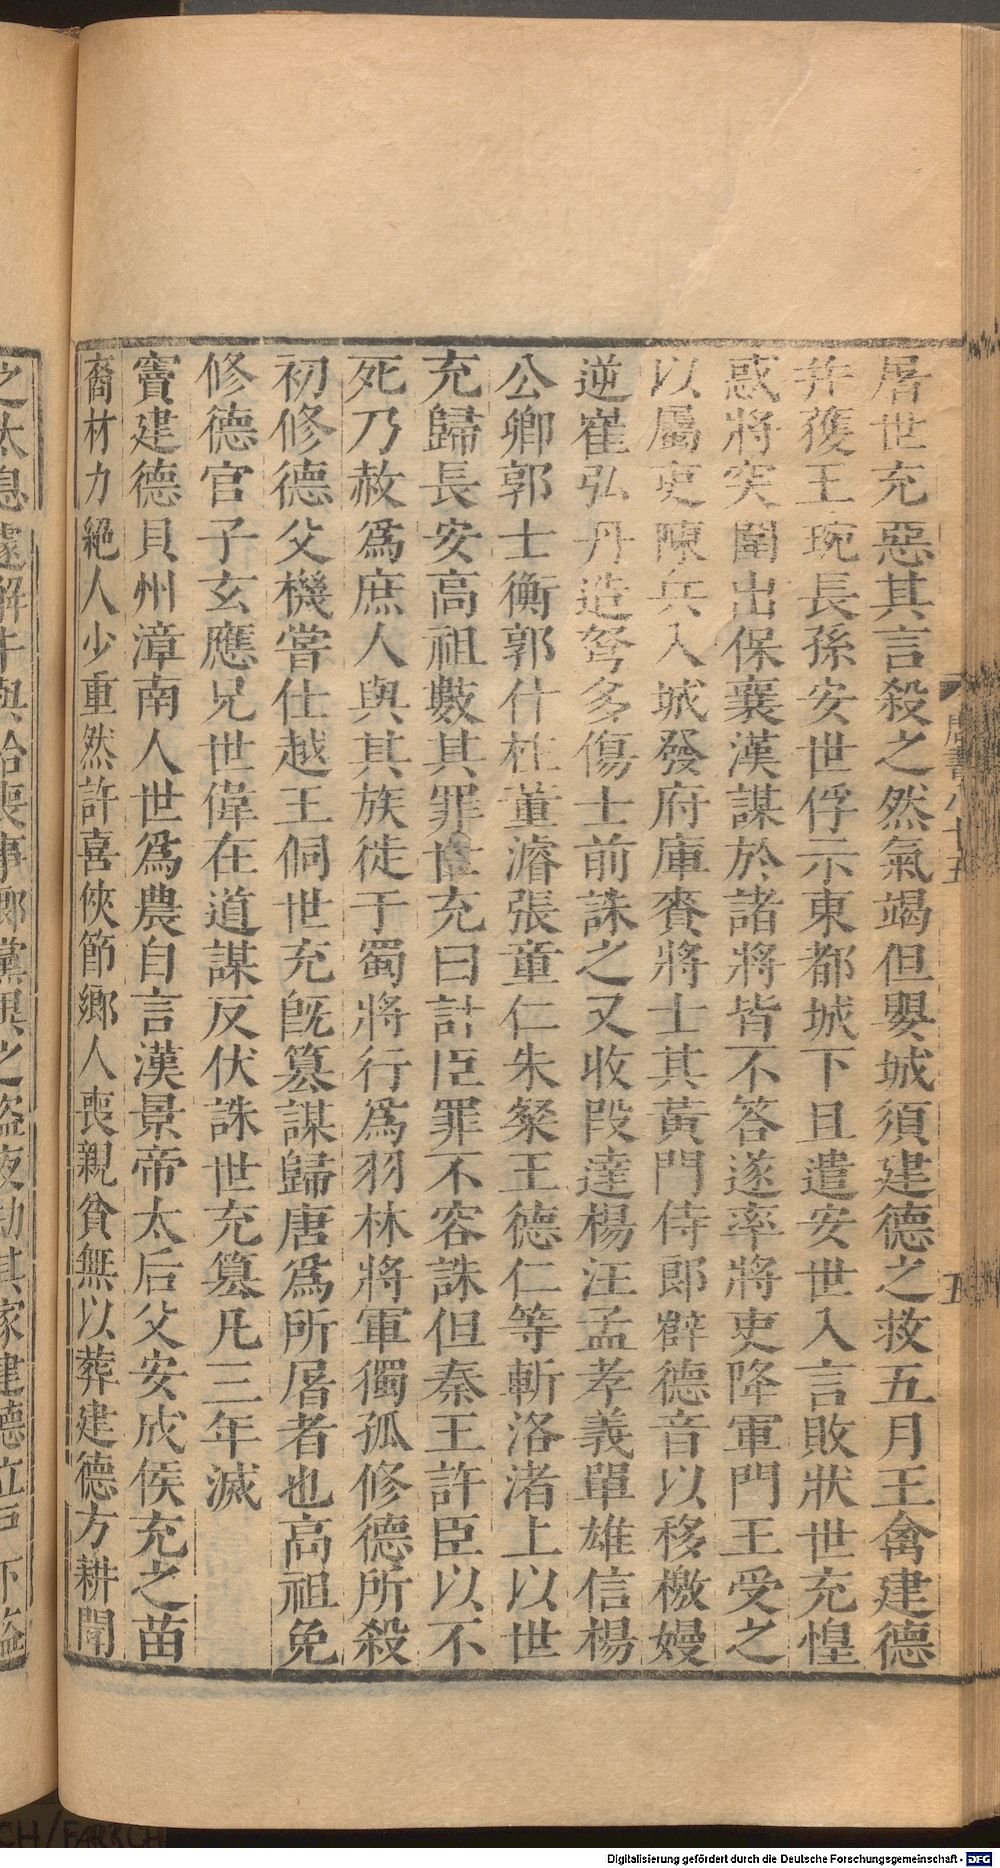 屠世充惡其言殺之然氣竭但嬰城須建德之救五月王禽建德
并獲王琬長孫安世俘示東都城下且遣安世入言敗狀世充惶
惑將突圍出保襄漢謀於諸將皆不答遂率將吏降軍門王受之
以屬吏陳兵入城發府庫賚將士其黃門侍郎薛德音以移檄嫚
逆崔弘丹造弩多傷士前誅之又收段達楊汪孟孝義單雄信楊
公卿郭士衡郭什柱董濬張童仁朱粲王德仁等斬洛渚上以世
充歸長安高祖數其罪世充曰計臣罪不容誅但秦王許臣以不
死乃赦爲庶人與其族徙于蜀將行爲羽林將軍獨孤修德所殺
初修德父機嘗仕越王侗世充旣篡謀歸唐爲所屠者也高祖免
修德官子玄應兄世偉在道謀反伏誅世充篡凡三年滅
竇建德貝州漳南人世爲農自言漢景帝太后父安成侯充之苗
裔材力絕人少重然許喜俠節鄉人喪親貧無以葬建德方耕聞
之太息遽解牛與給喪事鄉黨異之盜夜劫其家建德立戶下盜
唐書八十五
五
Digitalisierung gefördert durch die Deutsche Forschungsgemeinschaft - DFG